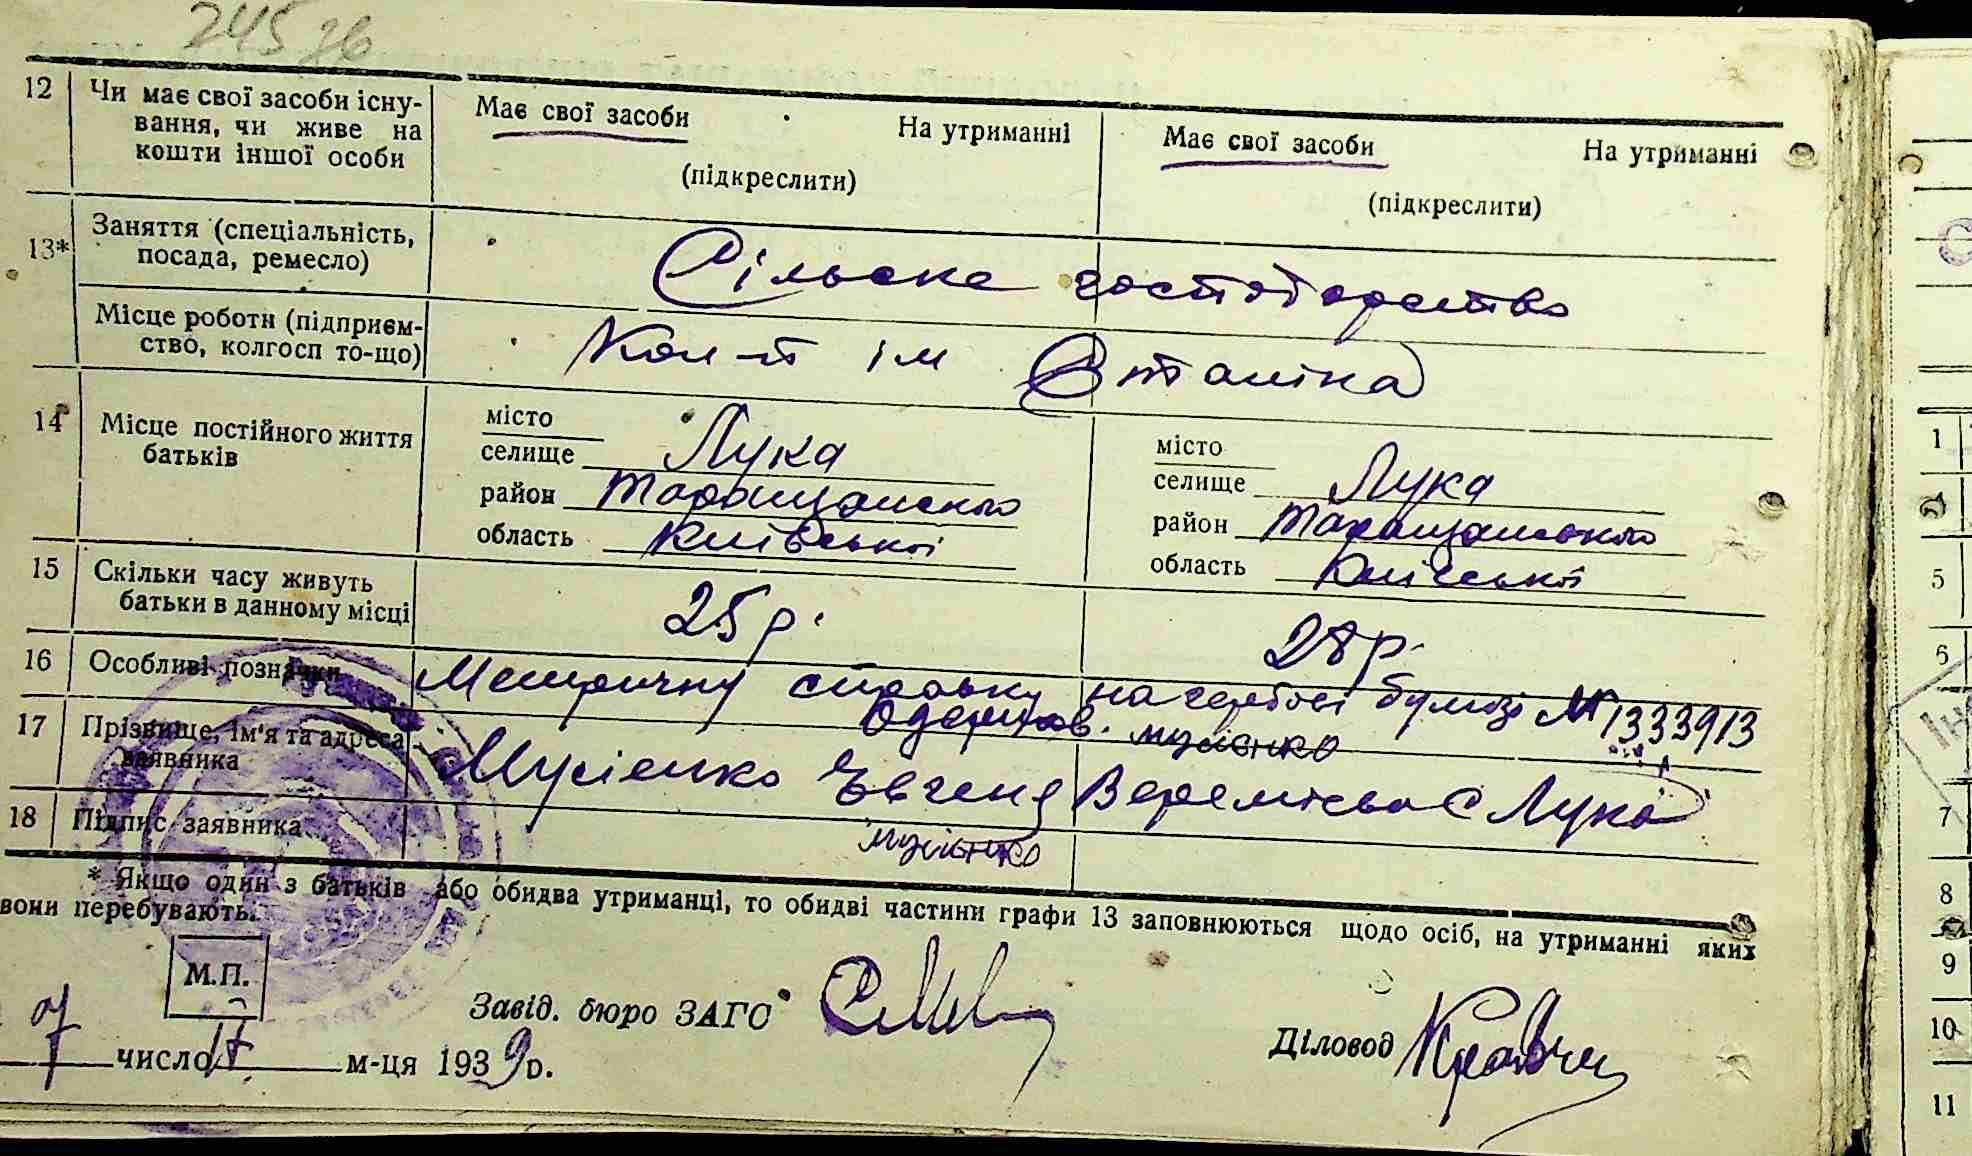 245 зв
12 Чи має свої засоби існу-
вання, чи живе на
кошти іншої особи
Має свої засоби На утриманні
(підкреслити)
Має свої засоби На утриманні
(підкреслити)
13* Заняття (спеціальність,
посада, ремесло)
Сільське господарство
Місце роботи (підприєм-
ство, колгосп то-що)
Кол-п ім Сталіна
14 Місце постійного життя
батьків
місто
селище Лука
район Таращанського
область Київської
місто
селище Лука
район Таращанського
область Київської
15 Скільки часу живуть
батьки в данному місці
25 р.
28 р.
16 Особливі позначки
Метричну справку на гербові бумазі № 1333913
одержав. Мусієнко
17 Прізвище, ім'я та адреса
заявника
Мусієнко Євгена Веремієва С Лука
18 Підпис заявника
Мусієнко
* Якщо один з батьків або обидва утриманці, то обидві частини графи 13 заповнюються щодо осіб, на утриманні яких
вони перебувають.
М.П.
Завід. бюро ЗАГС
Діловод
7 число м-ця 1939 р.
1
5
6
7
8
9
10
11